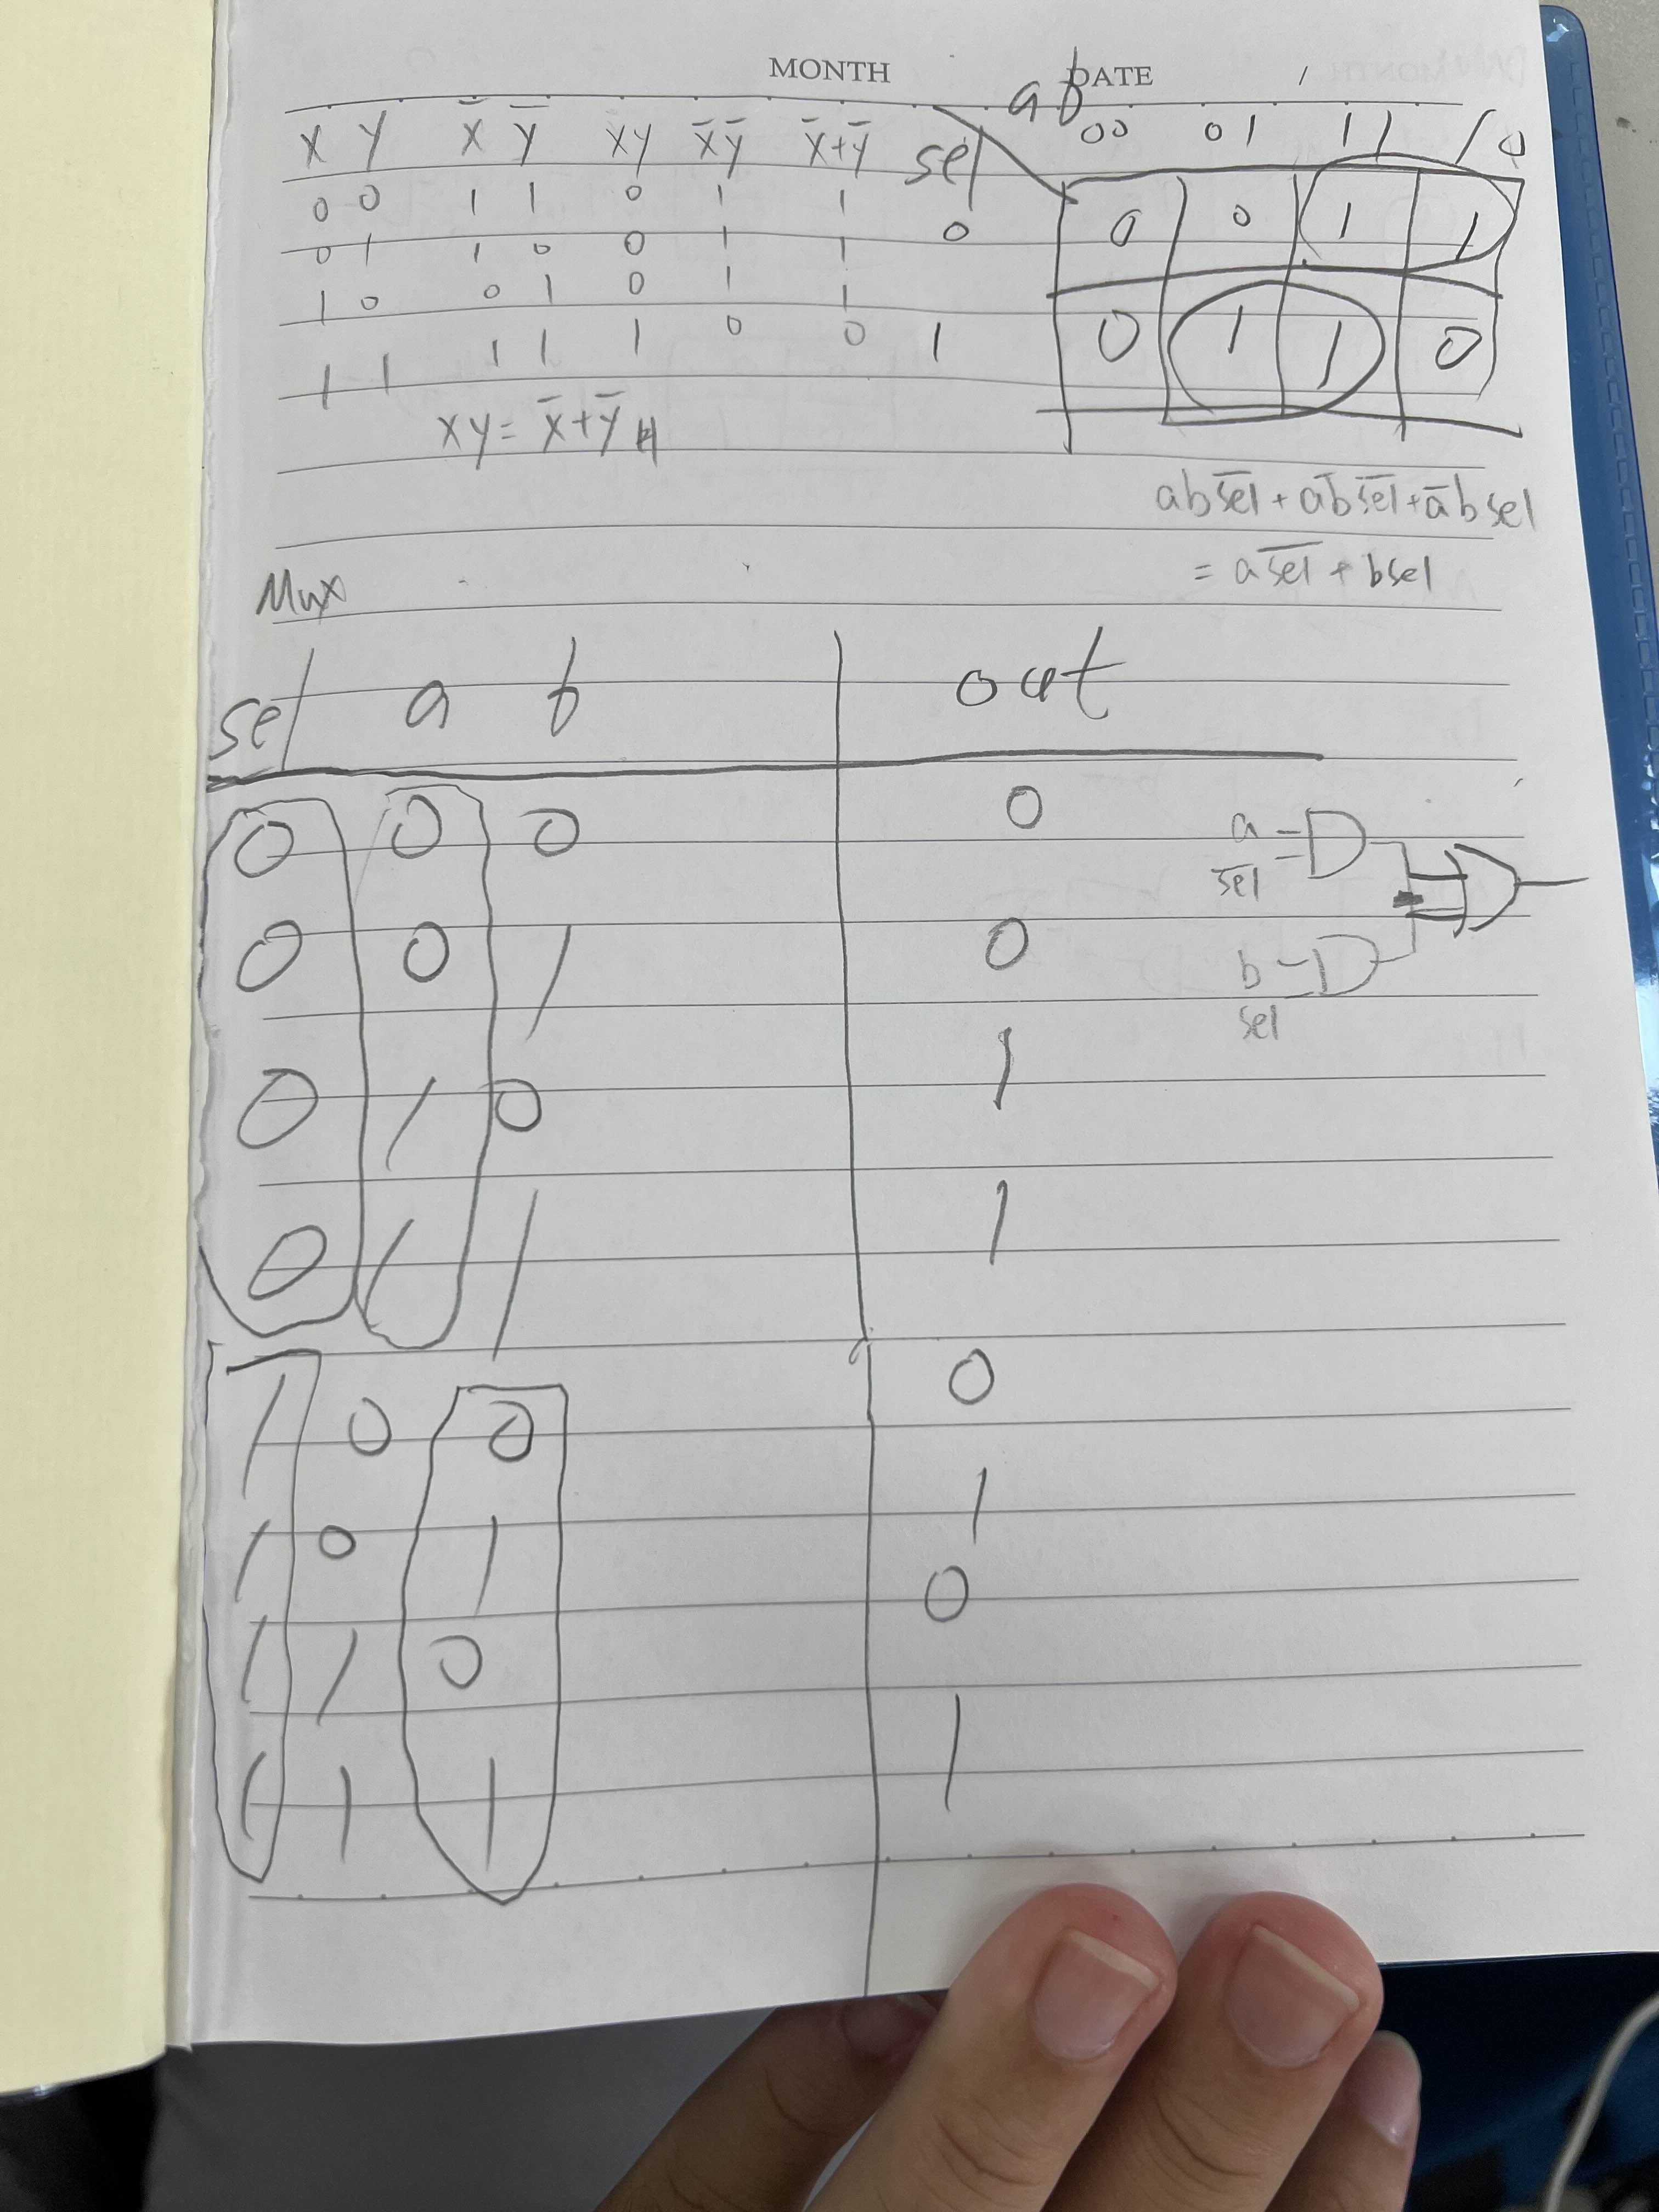 MONTH DATE
x y x̄ ȳ xy x̄ȳ x̄+ȳ
0 0 1 1 0 1 1
0 1 1 0 0 1 1
1 0 0 1 0 1 1
1 1 1 1 1 0 0
xy = x̄+ȳ
ab
sel 00 01 11 10
0 0 0 1 1
1 0 1 1 0
ab s̅e̅l̅ + ab̄ s̅e̅l̅ + āb sel
= a s̅e̅l̅ + b sel
Mux
sel a b out
0 0 0 0
0 0 1 0
0 1 0 1
0 1 1 1
1 0 0 0
1 0 1 1
1 1 0 0
1 1 1 1
a
s̅e̅l̅
b
sel